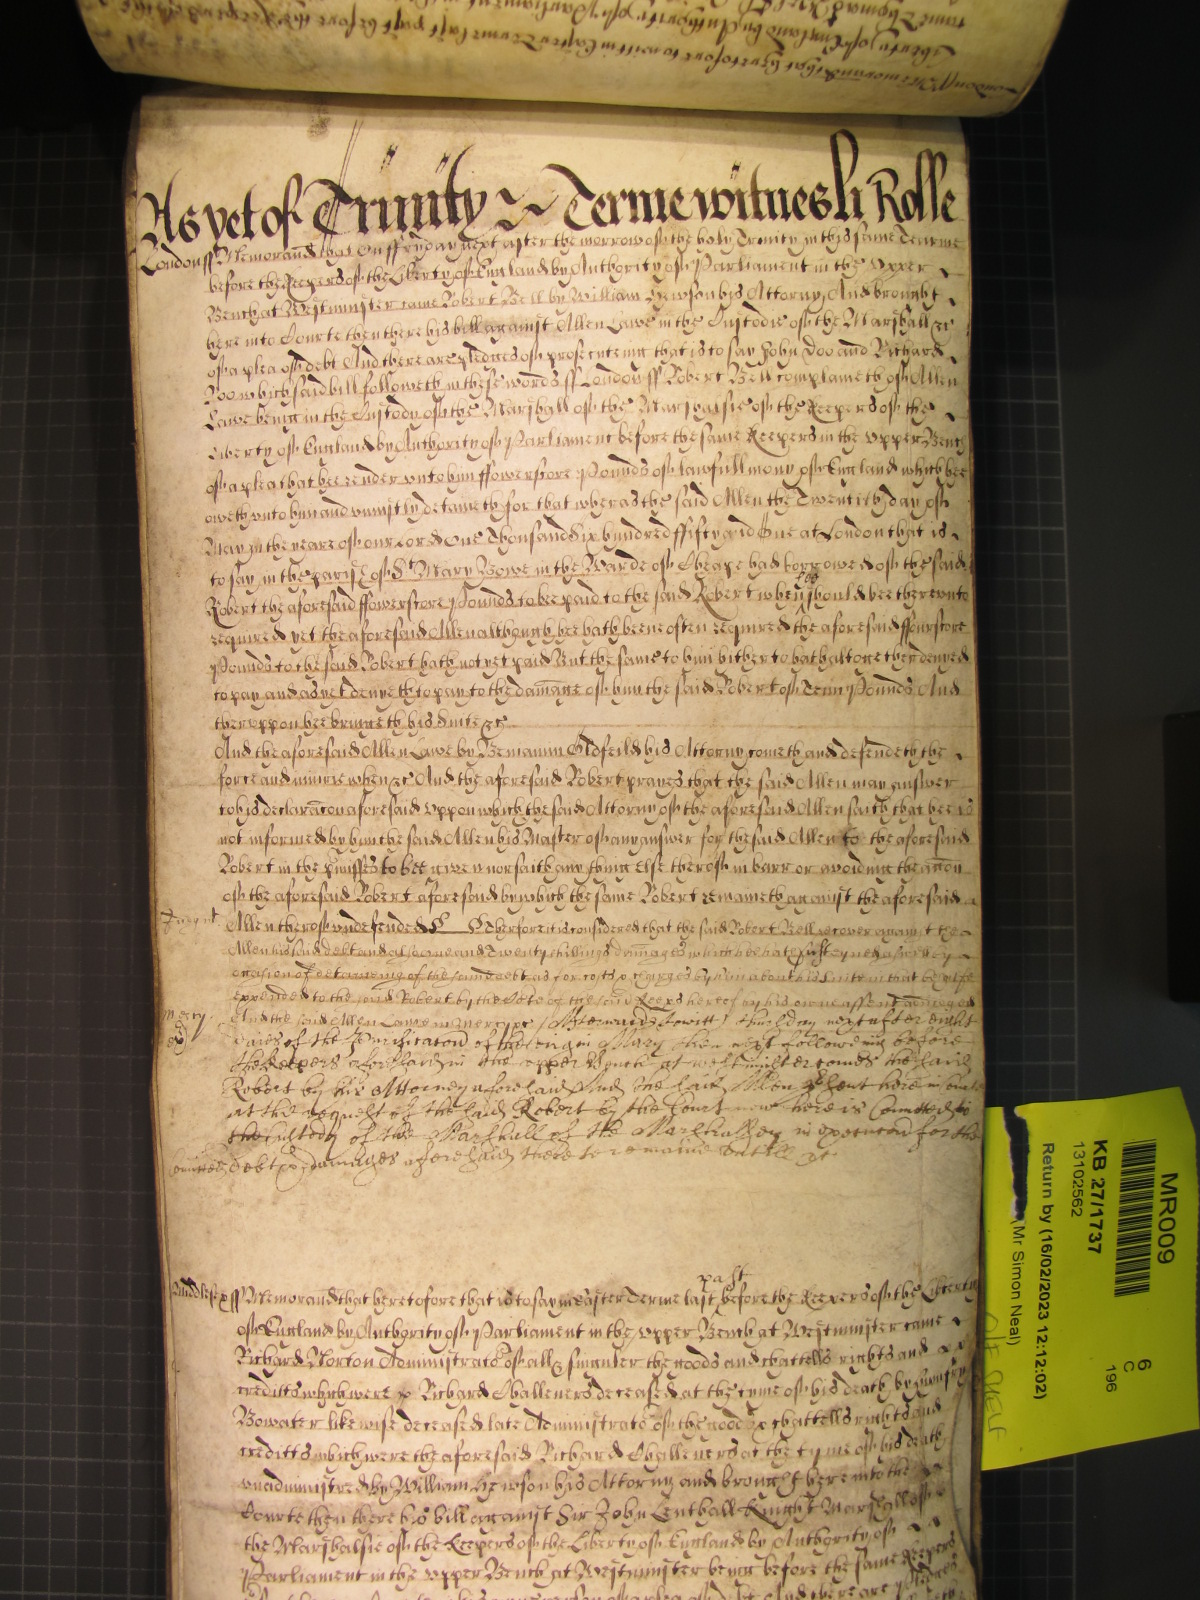 As yet of Trinity Terme witnes H Rolle
London ss Memorand that on ffryday next after the morrow of the holy Trinity in this same Tearme
before the Keepers of the Liberty of England by Authority of Parliament in the Vpper
Bench at Westminster came Robert Bell by William Hewson his Attorny And brought
here into Courte then there his bill against Allen Lawe in the Custodie of the Marshall &c
of a plea of debt And there are pledges of prosecuteing that is to say John Doo and Richard
Roo which said bill followeth in these words ss London ss Robert Bell complaineth of Allen
Lawe being in the Custody of the Marshall of the Marshalsie of the Keepers of the
Liberty of England by Authority of Parliament before the same Keepers in the vpper Bench
of a plea that hee render vnto him ffowerscore Pounds of lawfull mony of England which hee
oweth vnto him and vniustly detaineth for that wheras the said Allen the Twentith day of
May in the yeare of our Lord One Thousand Six hundred ffifty and One at London that is
to say in the parish of St Mary Bowe in the Warde of Cheape had borrowed of the said
Robert the aforesaid ffowerscore Pounds to bee paid to the said Robert when hee should bee therevnto
required yet the aforesaid Allen although hee hath beene often required the aforesaid ffourscore
Pounds to the said Robert hath not yet paid But the same to him hitherto hath altogether denyed
to pay and as yet denyeth to pay to the damage of him the said Robert of Tenn Pounds And
theruppon hee bringeth his suite &c
And the aforesaid Allen Lawe by Beniamin Oldfeild his Attorny cometh and defendeth the
force and iniurie when &c And the aforesaid Robert prayes that the said Allen may answer
to his declaracon aforesaid vppon which the said Attorny of the aforesaid Allen saith that hee is
not informed by him the said Allen his Master of any answer for the said Allen to the aforesaid
Robert in the pmisses to bee given nor saith any thing else therof in barr or avoiding the accon
of the aforesaid Robert aforesaid by which the same Robert remaineth against the aforesaid
Judgmt Allen therof vndefended Therfore it is considered that the said Robert Bell recover against the
Allen his said debt and also one and Twenty shillings damages which he hath susteyned aswell by
occasion of detayneing of the said debt as for costs & chardges by him about his suite in that behalfe
expended to the said Robert by the Court of the said Keepers here of his owne assent adiudged
mercy And the said Allen Lawe in mercy &c Afterwards towitt thursday next after eight
dayes of the Purificacon of the virgin Mary then next following before
the Keepers aforesaid in the vpper Bench at westminster comes the said
Robert by his Attorney aforesaid And the said Allen present here in Court
at the request of the said Robert by the Court now here is Comitted to
the custody of the Marshall of the Marshalsey in execucon for the
Comitted debt & damages aforesaid there to remaine vntill &c
past
Middlesex ss Memorand that heretofore that is to say in Easter Terme last before the Keepers of the Liberty
of England by Authority of Parliament in the vpper Bench at Westminster came
Richard Norton Administrator of all & singuler the goods and chattells rights and
creditts which were of Richard Challeners deceased at the tyme of his death by Humfry
Bowater likewise deceased late Administrator of the goods & chattells rights and
creditts which were the aforesaid Richard Challeners at the tyme of his death
vnadministred by William Hewson his Attorny and brought here into the
Courte then there his bill against Sir John Lenthall Knight Marshall of
the Marshalsie of the Keepers of the Liberty of England by Authority of
Parliament in the vpper Bench at Westminster being before the same Keepers
MR009
KB 27/1737
13102562
Return by (16/02/2023 12:12:02)
(Mr Simon Neal)
6
C
196